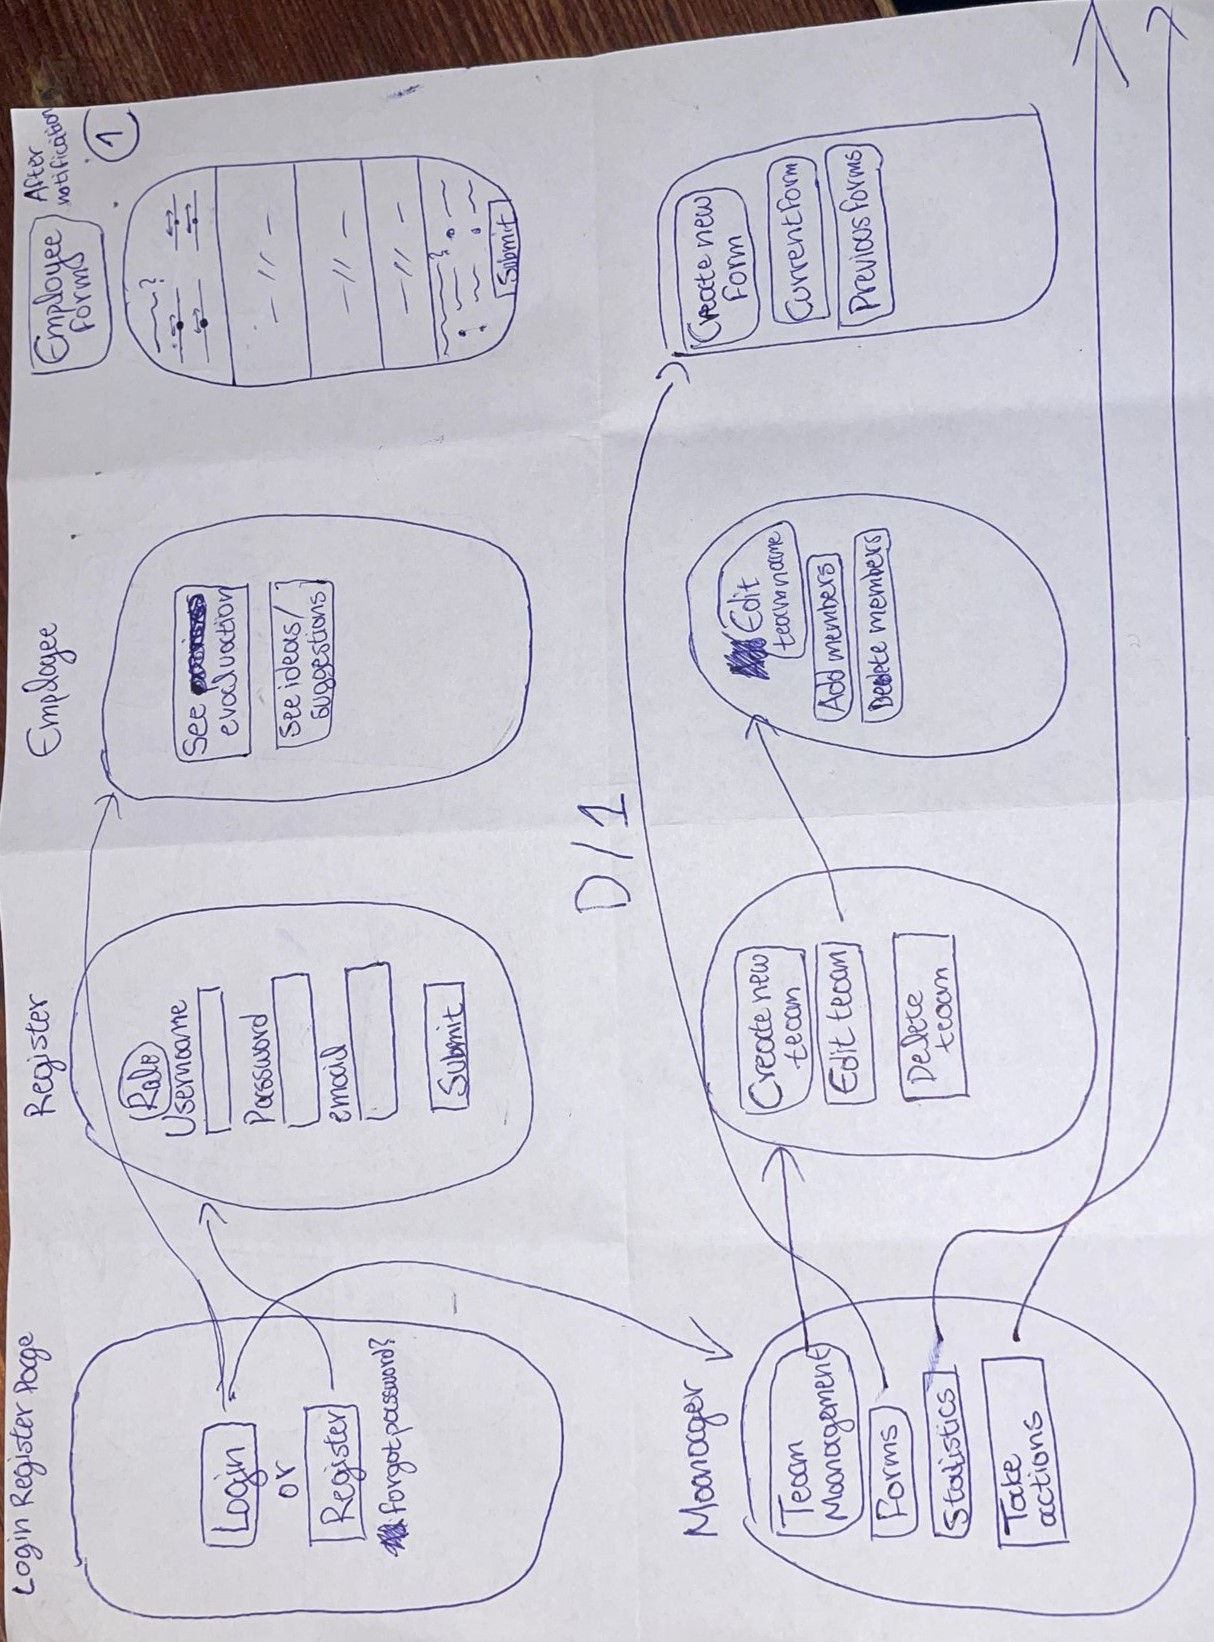 Login Register Page
Login
or
Register
forgot password?
Register
Role
Username
Password
email
Submit
Employee
See
evaluation
see ideas/
suggestions
Employee
forms
After
notification
1
?
- // -
- // -
- // -
?
Submit
D/1
Manager
Team
Management
Forms
Statistics
Take
actions
Create new
team
Edit team
Delete
team
Edit
team name
Add members
Delete members
Create new
form
Current form
Previous forms